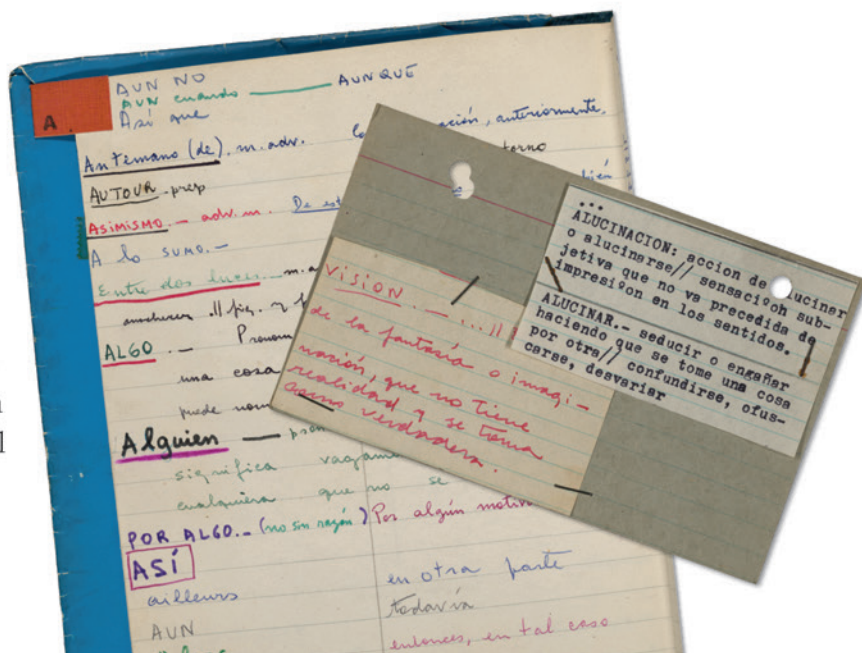 A.
AUN NO
AUN cuando — AUNQUE
Así que
Antemano (de). m. adv. ación, anteriormente.
AUTOUR - prep torno
ASIMISMO. - adv. m. De
A lo SUMO. -
Entre dos luces. - m. a
anochecer. // fig. y f
ALGO. - Pronom
una cosa
puede
Alguien — pron
significa vagam
cualquiera que no se
POR ALGO. - (no sin razón) Por algún motiv
ASÍ
ailleurs en otra parte
AUN todavía
entonces, en tal caso
VISION. - ... //
de la fantasía o imagi-
nación, que no tiene
realidad y se toma
como verdadera.
...
ALUCINACION: accion de lucinar
o alucinarse// sensaci°oh sub-
jetiva que no va precedida de
impresi°on en los sentidos.
ALUCINAR.- seducir o engañar
haciendo que se tome una cosa
por otra// confundirse, ofus-
carse, desvariar
l